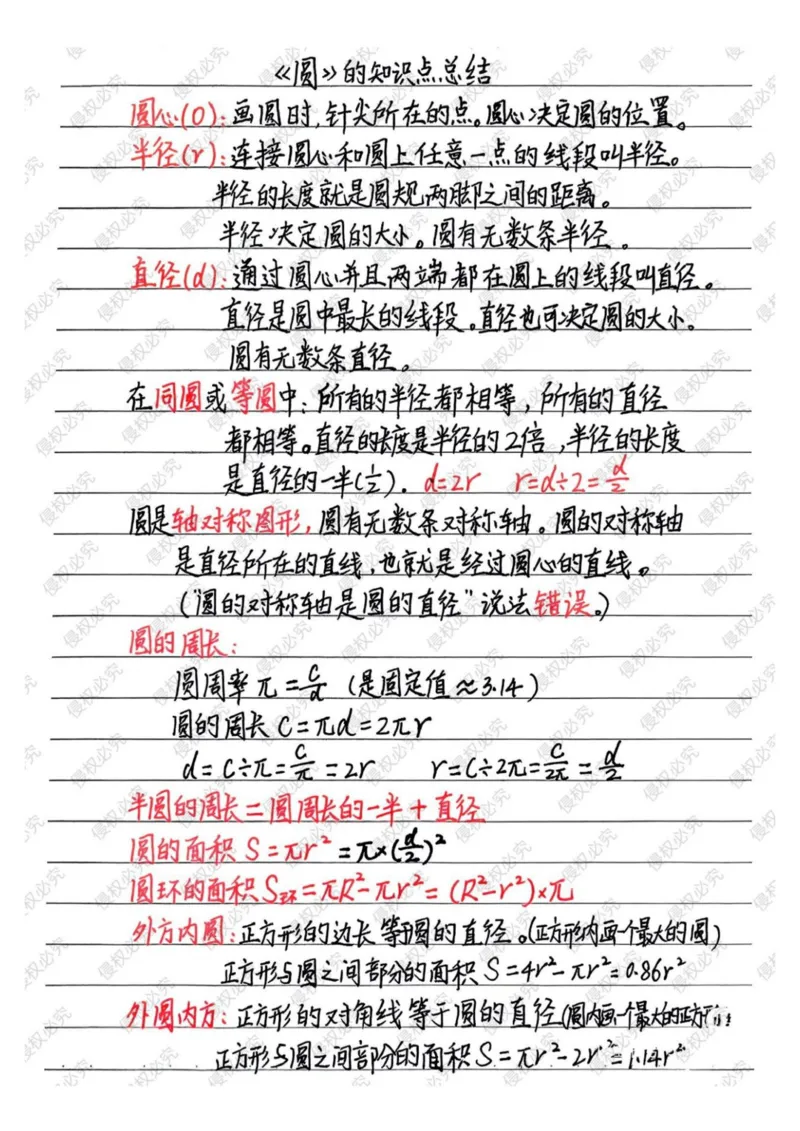 《圆》的知识点总结
圆心(O):画圆时,针尖所在的点。圆心决定圆的位置。
半径(r):连接圆心和圆上任意一点的线段叫半径。
半径的长度就是圆规两脚之间的距离。
半径决定圆的大小。圆有无数条半径。
直径(d):通过圆心并且两端都在圆上的线段叫直径。
直径是圆中最长的线段。直径也可决定圆的大小。
圆有无数条直径。
在同圆或等圆中:所有的半径都相等,所有的直径
都相等。直径的长度是半径的2倍,半径的长度
是直径的一半(1/2). d=2r r=d÷2=d/2
圆是轴对称图形,圆有无数条对称轴。圆的对称轴
是直径所在的直线,也就是经过圆心的直线。
("圆的对称轴是圆的直径"说法错误。)
圆的周长:
圆周率π=C/d (是固定值≈3.14)
圆的周长C=πd=2πr
d=C÷π=C/π=2r r=C÷2π=C/2π=d/2
半圆的周长=圆周长的一半+直径
圆的面积 S=πr²=π×(d/2)²
圆环的面积S环=πR²-πr²=(R²-r²)×π
外方内圆:正方形的边长等于圆的直径。(正方形内画一个最大的圆)
正方形与圆之间部分的面积S=4r²-πr²=0.86r²
外圆内方:正方形的对角线等于圆的直径(圆内画一个最大的正方形
正方形与圆之间部分的面积S=πr²-2r²=1.14r²